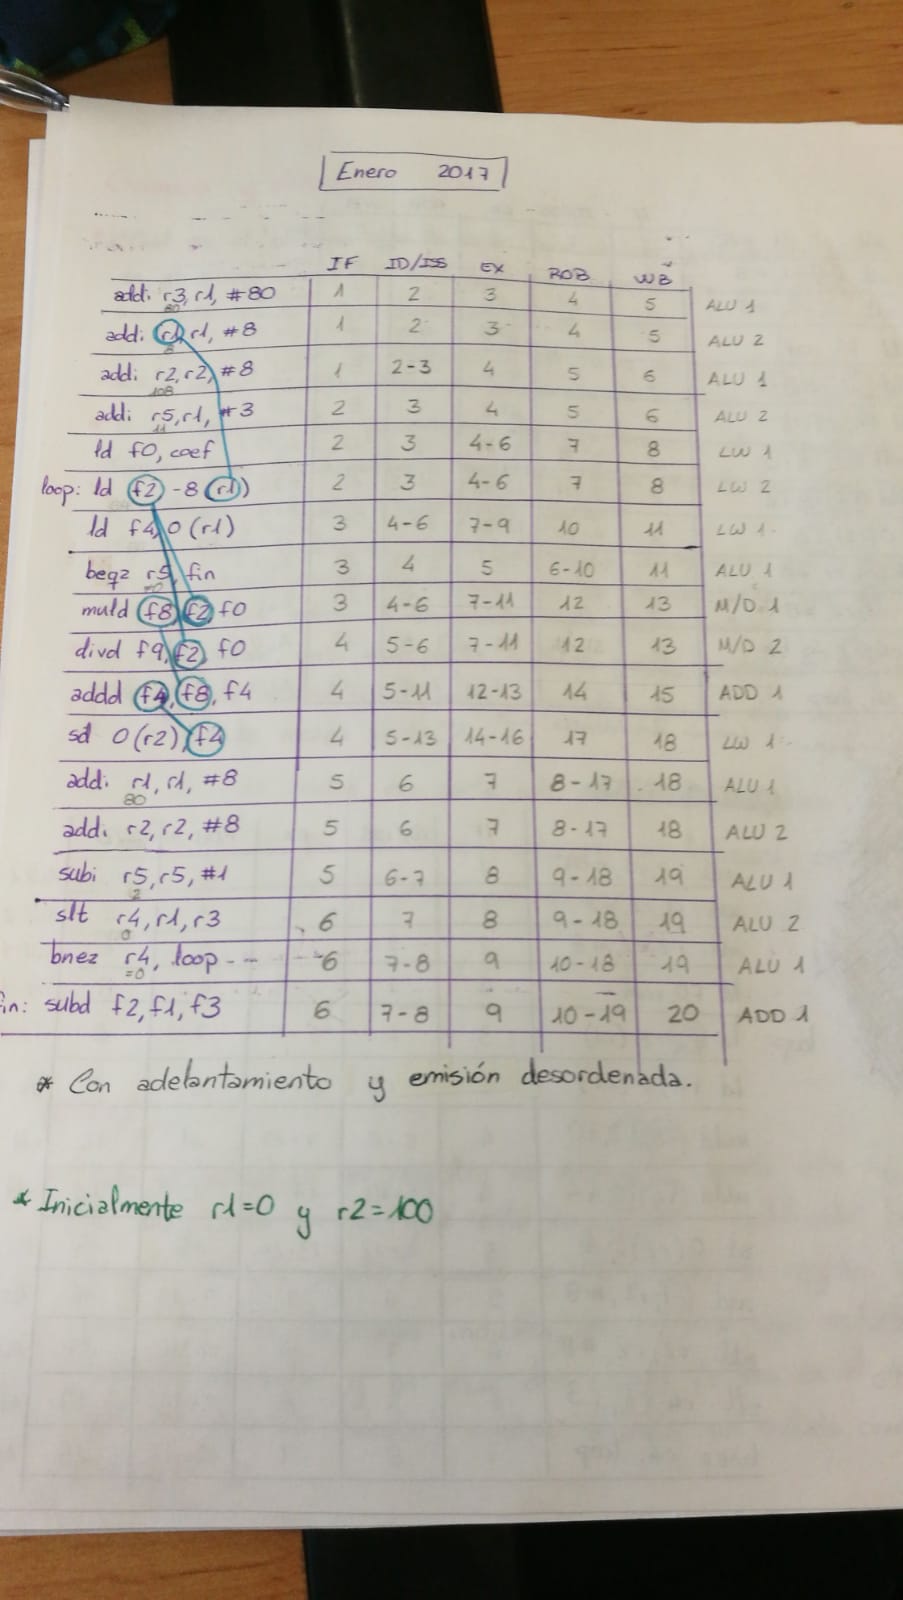 Enero 2017
IF ID/ISS EX ROB WB
addi r3, r1, #80 1 2 3 4 5 ALU 1
80
addi r1, r1, #8 1 2 3 4 5 ALU 2
8
addi r2, r2, #8 1 2-3 4 5 6 ALU 1
108
addi r5, r1, #3 2 3 4 5 6 ALU 2
11
ld f0, coef 2 3 4-6 7 8 LW 1
loop: ld f2 -8 (r1) 2 3 4-6 7 8 LW 2
ld f4, 0 (r1) 3 4-6 7-9 10 11 LW 1
beqz r5, fin 3 4 5 6-10 11 ALU 1
muld f8, f2, f0 3 4-6 7-11 12 13 M/D 1
divd f9, f2, f0 4 5-6 7-11 12 13 M/D 2
addd f4, f8, f4 4 5-11 12-13 14 15 ADD 1
sd 0(r2), f4 4 5-13 14-16 17 18 LW 1
addi r1, r1, #8 5 6 7 8-17 18 ALU 1
80
addi r2, r2, #8 5 6 7 8-17 18 ALU 2
subi r5, r5, #1 5 6-7 8 9-18 19 ALU 1
2
slt r4, r1, r3 6 7 8 9-18 19 ALU 2
0
bnez r4, loop 6 7-8 9 10-18 19 ALU 1
=0
fin: subd f2, f1, f3 6 7-8 9 10-19 20 ADD 1
* Con adelantamiento y emisión desordenada.
* Inicialmente r1=0 y r2=100